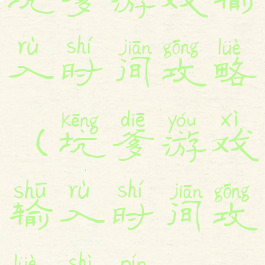 坑爹游戏输
rù shí jiān gōng lüè
入时间攻略
kēng diē yóu xì
(坑爹游戏
shū rù shí jiān gōng
输入时间攻
lüè shì pín